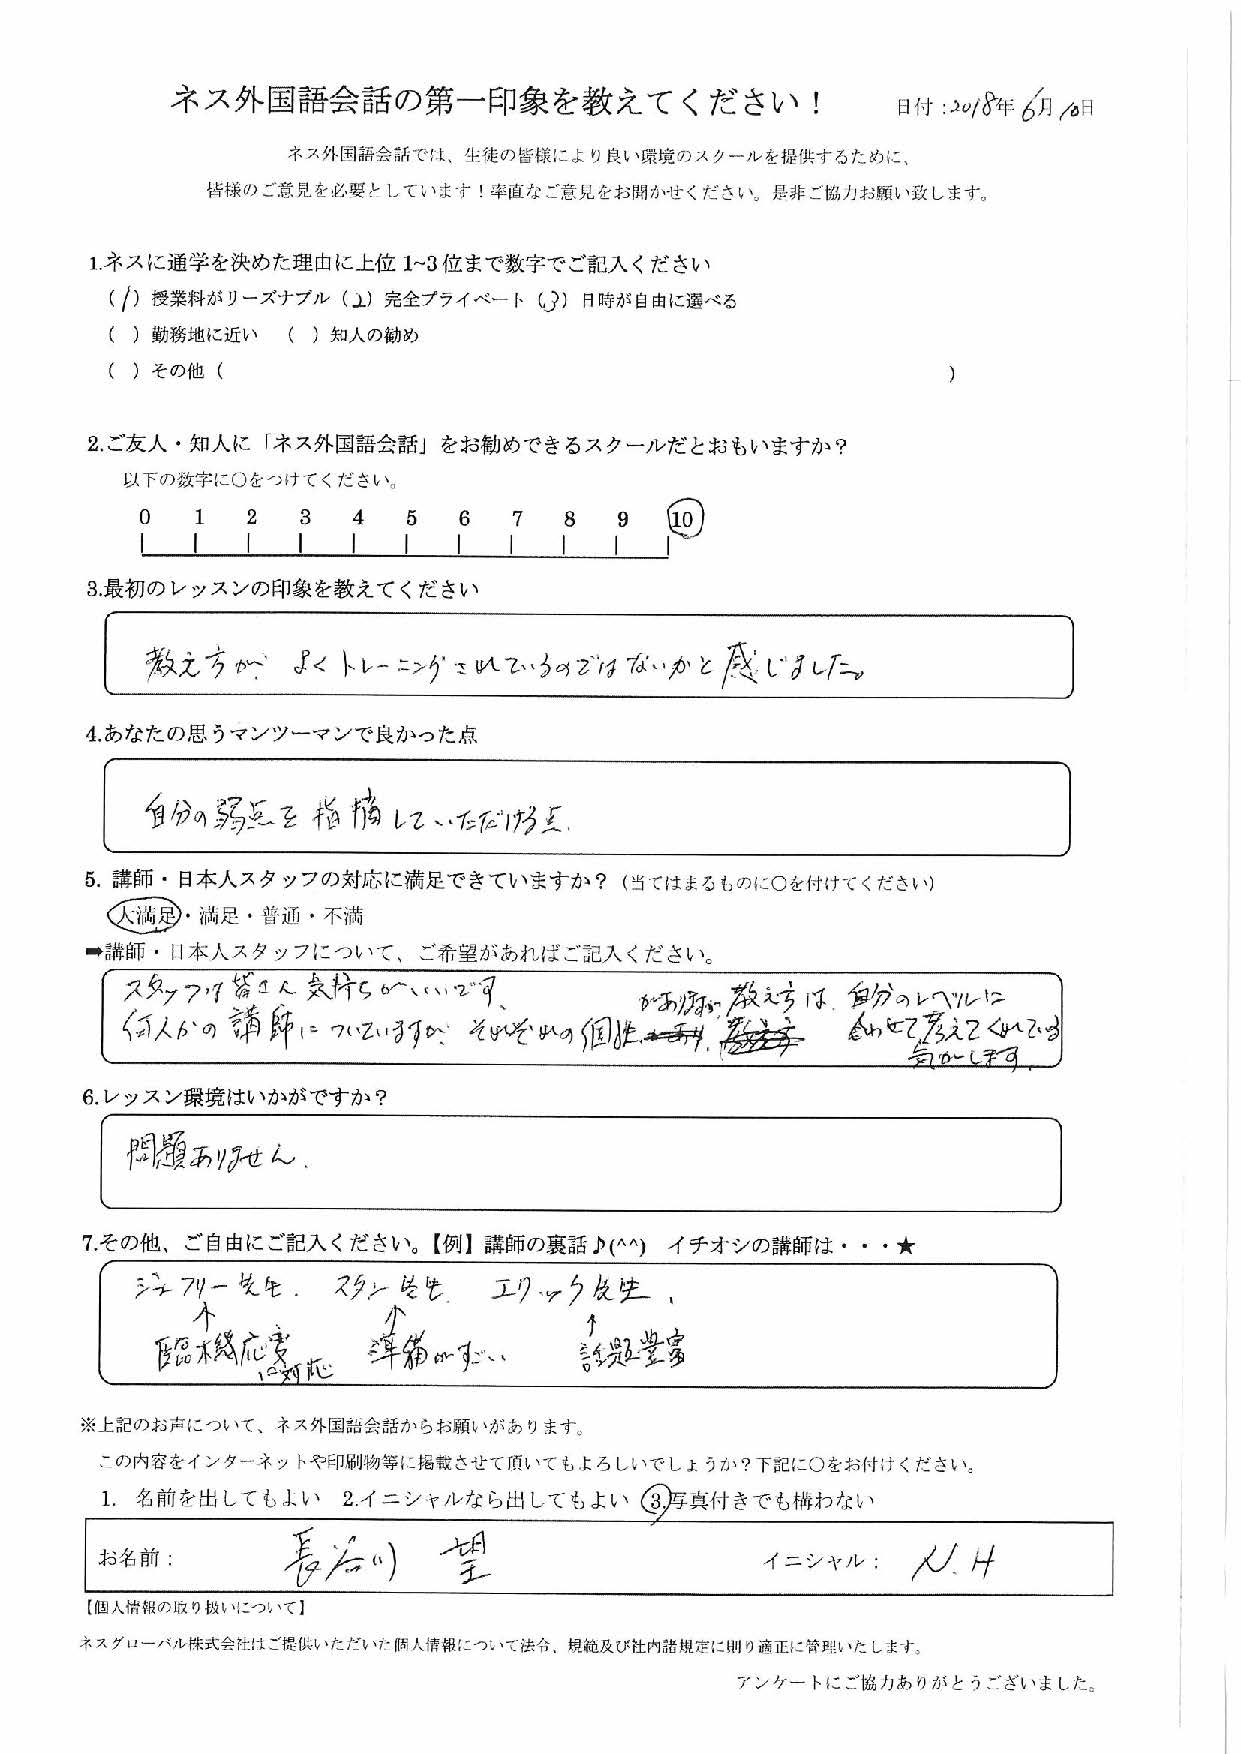 ネス外国語会話の第一印象を教えてください！ 日付：2018年6月10日
ネス外国語会話では、生徒の皆様により良い環境のスクールを提供するために、
皆様のご意見を必要としています！率直なご意見をお聞かせください。是非ご協力お願い致します。
1.ネスに通学を決めた理由に上位 1~3 位まで数字でご記入ください
（1）授業料がリーズナブル（2）完全プライベート（3）日時が自由に選べる
（ ）勤務地に近い （ ）知人の勧め
（ ）その他（ ）
2.ご友人・知人に「ネス外国語会話」をお勧めできるスクールだとおもいますか？
以下の数字に○をつけてください。
0 1 2 3 4 5 6 7 8 9 10
3.最初のレッスンの印象を教えてください
教え方が よくトレーニングされているのではないかと感じました。
4.あなたの思うマンツーマンで良かった点
自分の弱点を指摘していただける点.
5. 講師・日本人スタッフの対応に満足できていますか？（当てはまるものに○を付けてください）
大満足・満足・普通・不満
➡講師・日本人スタッフについて、ご希望があればご記入ください。
スタッフは皆さん気持ちがいいです、
何人かの講師についていますが それぞれの個性がありますが、教え方は、自分のレベルに
合わせて考えてくれている
気がします.
6.レッスン環境はいかがですか？
問題ありません.
7.その他、ご自由にご記入ください。【例】講師の裏話♪(^^) イチオシの講師は・・・★
ジェフリー先生. スタン先生. エリック先生.
↑ ↑ ↑
臨機応変 準備がすごい 話題豊富
に対応
※上記のお声について、ネス外国語会話からお願いがあります。
この内容をインターネットや印刷物等に掲載させて頂いてもよろしいでしょうか？下記に○をお付けください。
1. 名前を出してもよい 2.イニシャルなら出してもよい 3.写真付きでも構わない
お名前： 長谷川 望 イニシャル： N.H
【個人情報の取り扱いについて】
ネスグローバル株式会社はご提供いただいた個人情報について法令、規範及び社内諸規定に則り適正に管理いたします。
アンケートにご協力ありがとうございました。